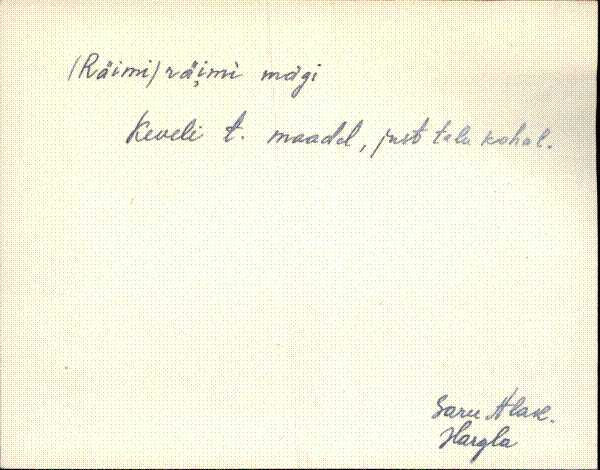 (Räimi) räi̭mi mägi
Keveli t. maadel, just talu kohal.
Saru Alak.
Hargla